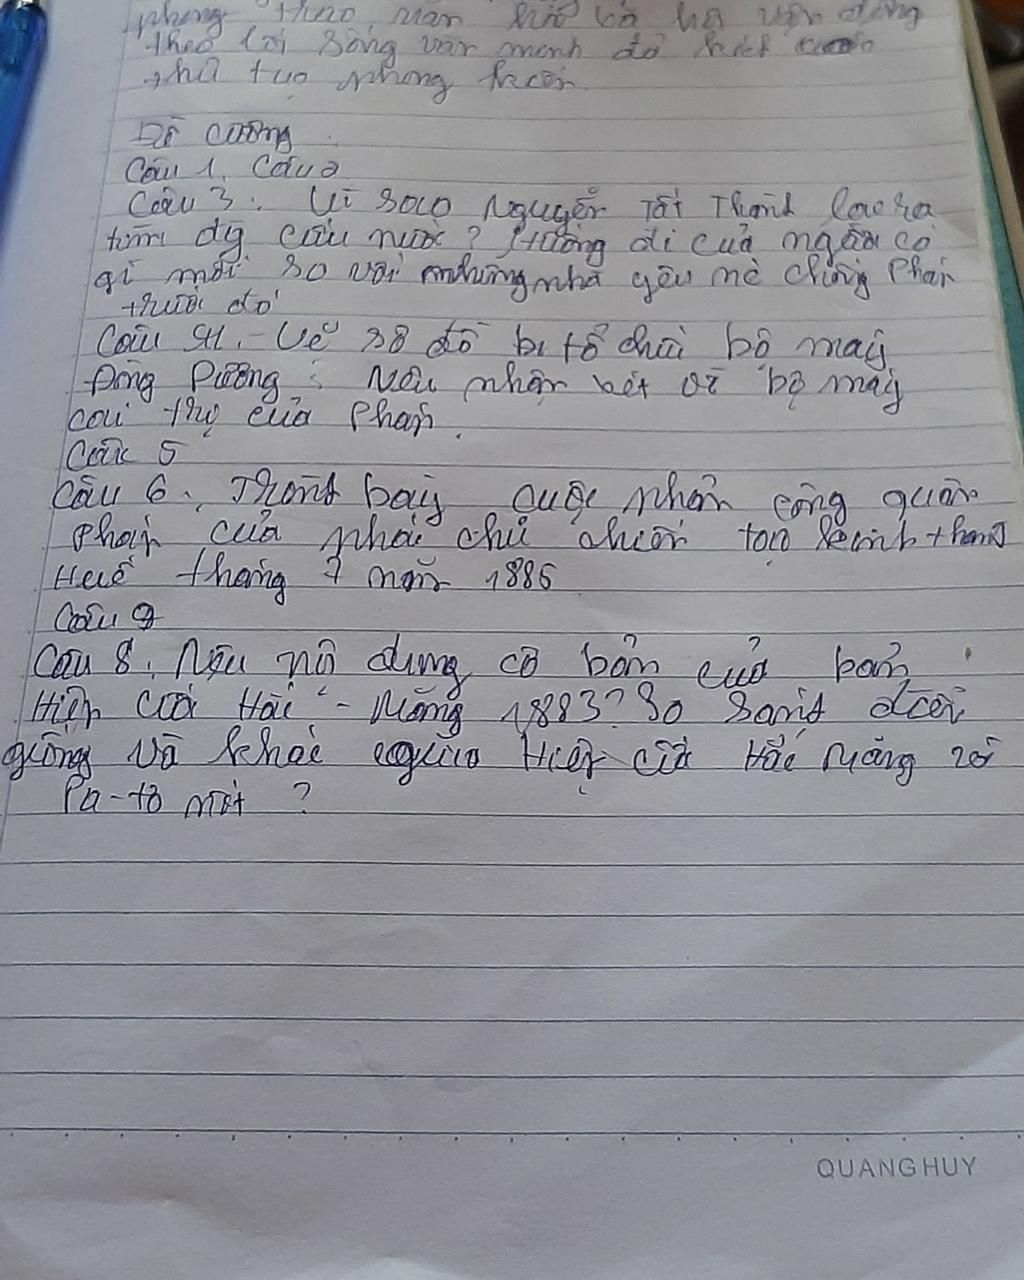 phong trào, văn hoá và hô vận động
theo lối sống văn minh đả kích
thủ tục phong kiến.
Đề cương
Câu 1, Câu 2
Câu 3. Vì sao Nguyễn Tất Thành lại ra
tìm đg cứu nước? Hướng đi của người có
gì mới so với những nhà yêu nc chống Pháp
trước đó
Câu 4. - Vẽ sơ đồ tổ chức bộ máy
Đông Dương; Nêu nhận xét về bộ máy
cai trị của Pháp.
Câu 5
Câu 6. Trình bày cuộc phản công quân
Pháp của phái chủ chiến tại kinh thành
Huế tháng 7 năm 1885
Câu 9
Câu 8. Nêu nội dung cơ bản của bản
Hiệp ước Hác - Măng 1883? So sánh điểm
giống và khác giữa Hiệp ước Hác Măng với
Pa-tơ nốt ?
QUANG HUY